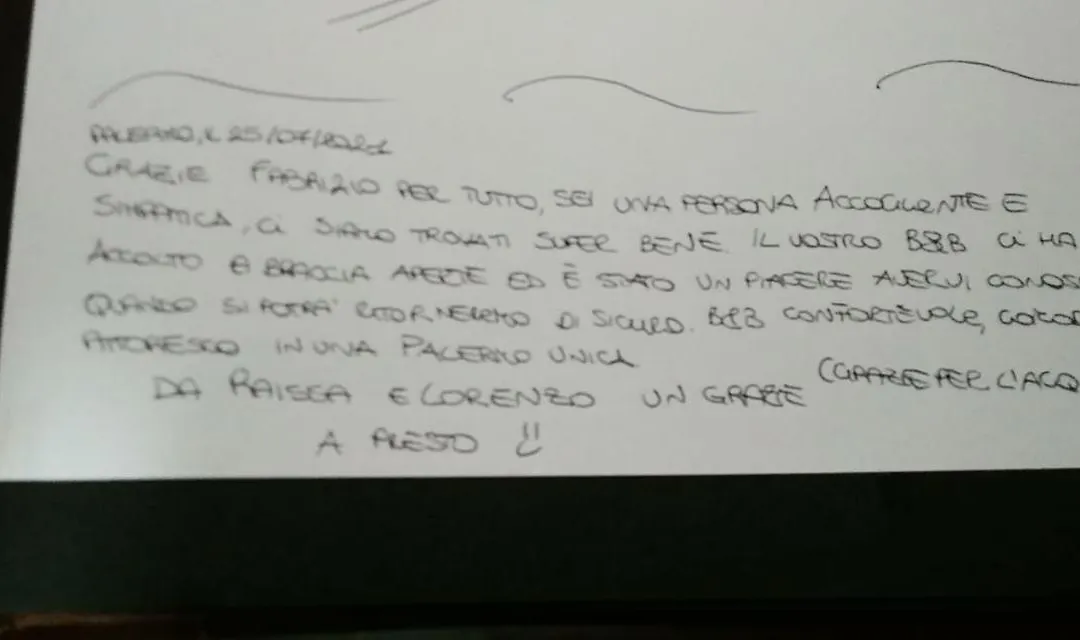 PALERMO, IL 25/07/2021
GRAZIE FABRIZIO PER TUTTO, SEI UNA PERSONA ACCOGLIENTE E
SIMPATICA, CI SIAMO TROVATI SUPER BENE. IL VOSTRO B&B CI HA
ACCOLTO A BRACCIA APERTE ED È STATO UN PIACERE AVERVI CONOS
QUANDO SI POTRA' RITORNEREMO DI SICURO. B&B CONFORTEVOLE,
PITTORESCO IN UNA PALERMO UNICA
(GRAZIE PER L'ACQ
DA RAISSA E LORENZO UN GRAZIE
A PRESTO